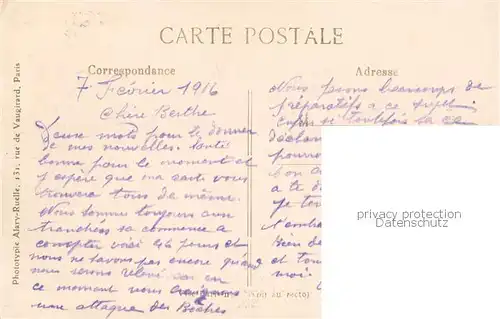 CARTE POSTALE
Correspondance
Adresse
7 Février 1916
Chère Berthe
Deux mots pour te donner
de mes nouvelles. Santé
bonne pour le moment et
j'espère que ma carte vous
trouvera tous de même.
Nous sommes toujours aux
tranchées sa commence a
compter voici 46 jours et
nous ne savons pas encore quand
nous serons relevé car en
ce moment nous craignons
une attaque des Boches
Nous faisons beaucoup de
préparatifs a ce sujet
enfin si toutefois sa ce
déclan
pourro
bon
a te d
je ter
t'embra
bien de
et tou
moi.
Phototypie Alary-Ruelle, 131, rue de Vaugirard, Paris
privacy protection
Datenschutz